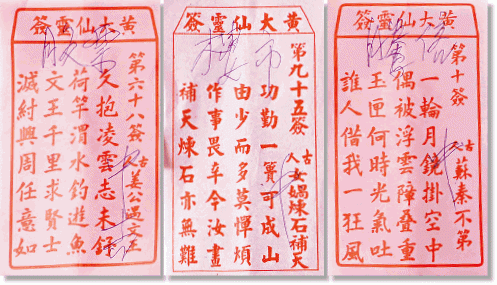 黃大仙靈簽
第六十八簽
古人 姜公遇文王
久抱凌雲志未舒
荷竿渭水釣進魚
文王千里求賢士
滅紂興周任意如
黃大仙靈簽
第九十五簽
古人 女媧煉石補天
功勤一簣可成山
由少而多莫憚煩
作事畏辛今汝畫
補天煉石亦無難
黃大仙靈簽
第十簽
古人 蘇秦不第
一輪月鏡掛空中
偶被浮雲障叠重
玉匣何時光氣吐
誰人借我一狂風